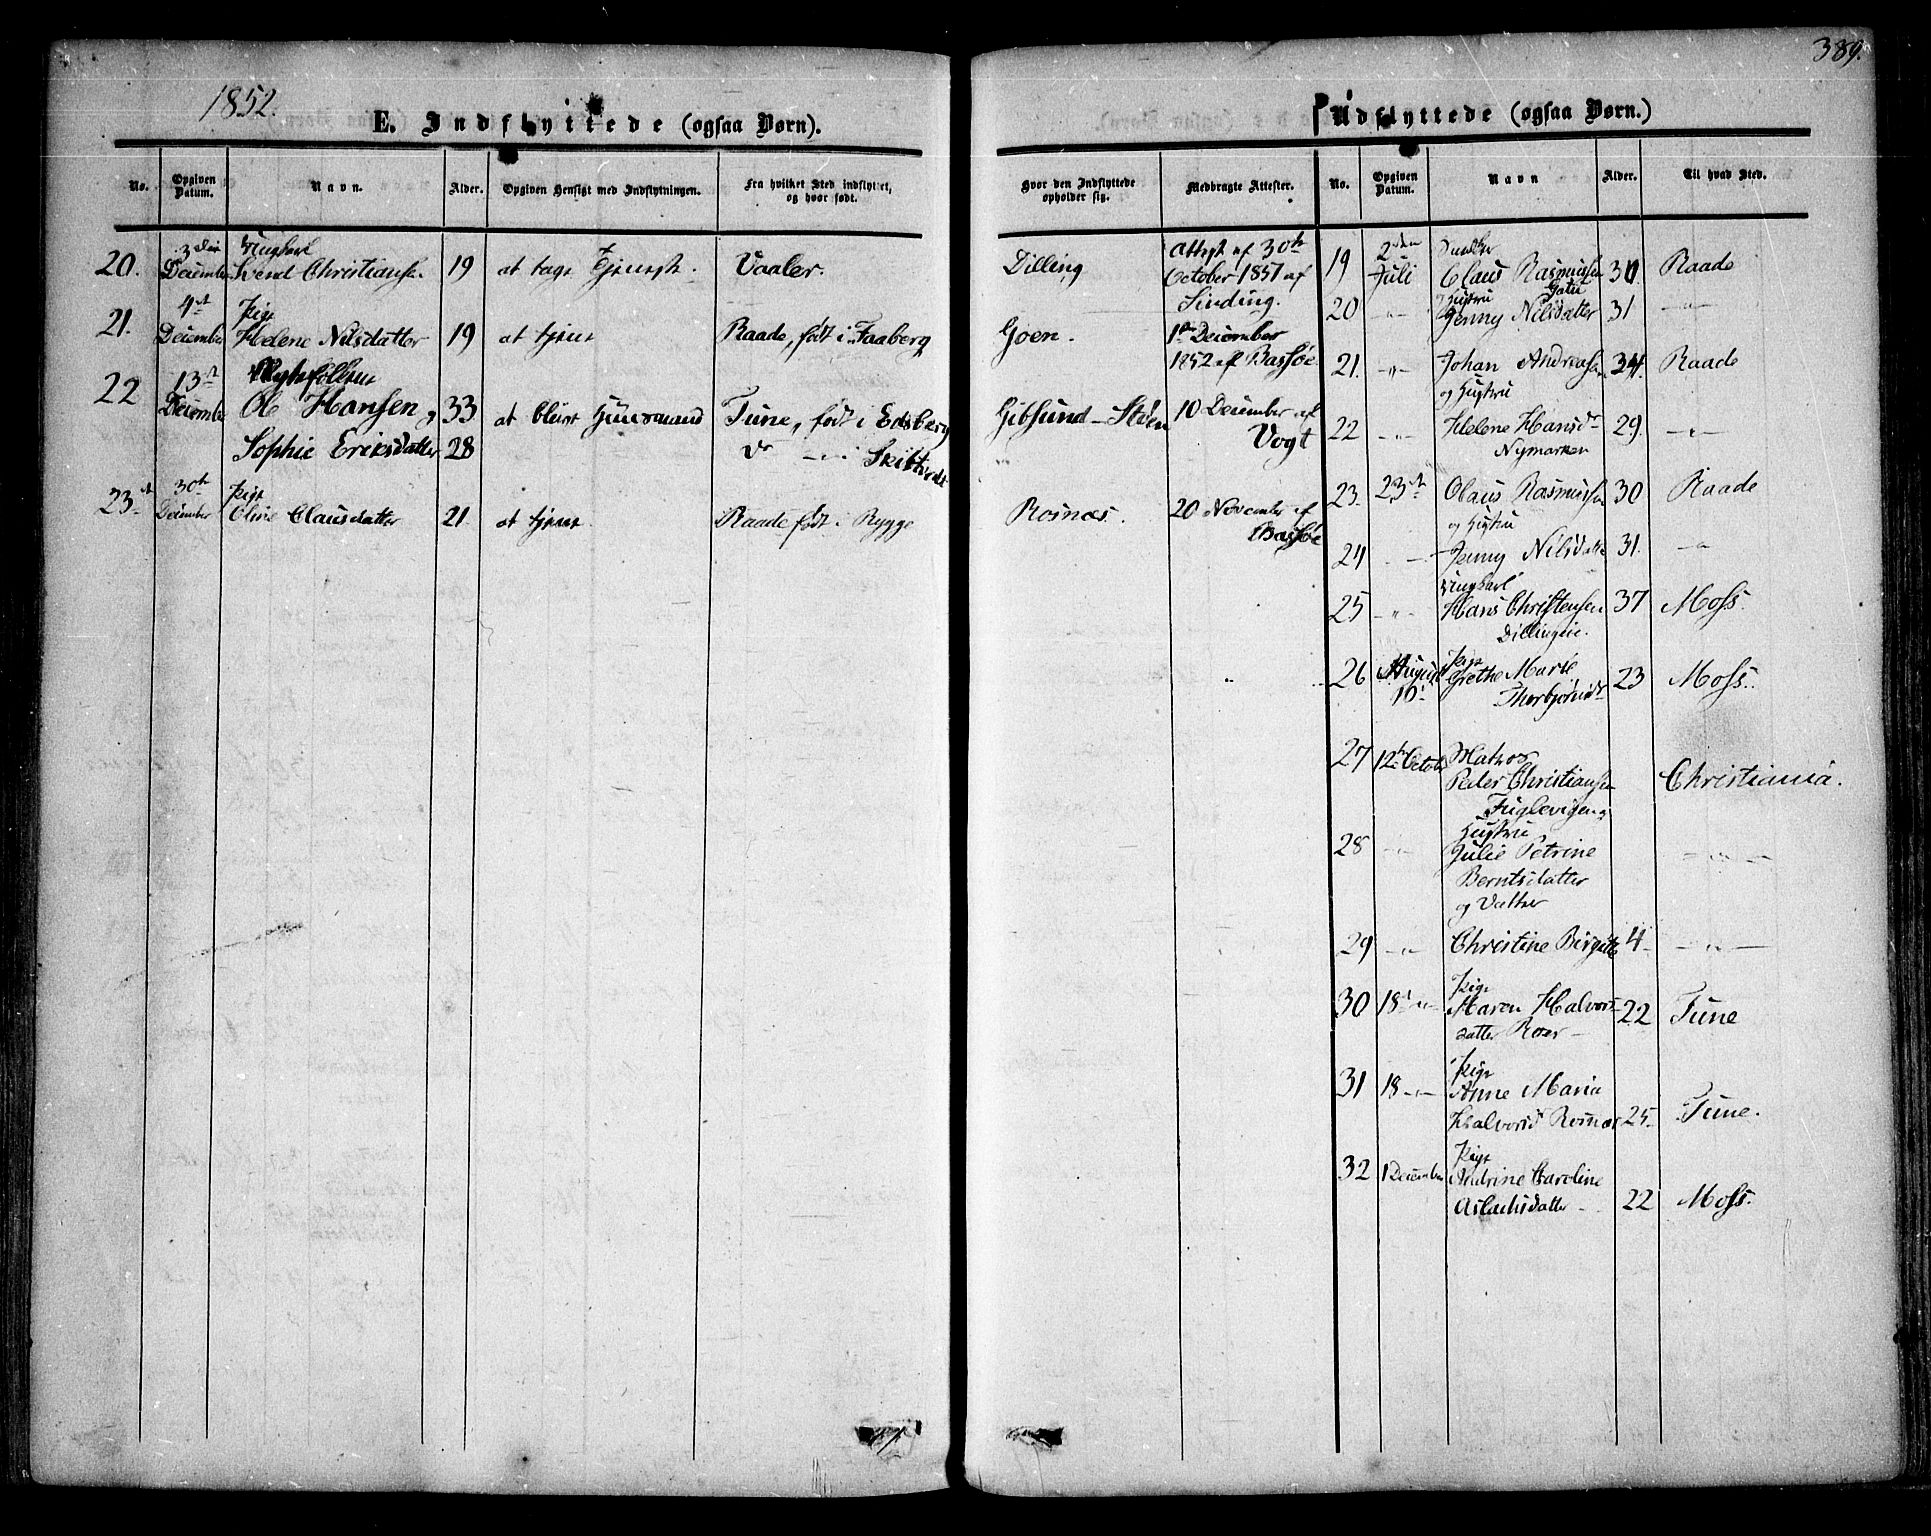 389.
1852.
E. Indflyttede (ogsaa Børn).
No.
Opgiven Datum.
Navn.
Alder.
Opgiven Hensigt med Indflytningen.
Fra hvilket Sted indflyttet, og hvor født.
20. 3die December Ungkarl Svend Christianse. 19 at tage Tjeneste. Vaaler.
21. 4de December Pige Helene Nilsdatter 19 at tjene Raade, født i Faaberg
22 13de December Ole Hansen og 33 at blive Huusmand Tune, født i Eidsberg
Sophie Eriksdatter 28 do — " i Skibtvedt
23. 30te December Pige Oline Clausdatter 21. at tjene. Raade født i Rygge
Hvor den Indflyttede opholder sig.
Medbragte Attester.
Dilling
Attest af 30te
October 1851 af
Sinding.
Goen.
1ste December
1852 af Bassøe.
Gibsund-Støen
10 December af
Vogt
Rosnæs.
20 November af
Bassøe
Udflyttede (ogsaa Børn.)
No.
Opgiven Datum.
Navn
Alder.
Til hvad Sted.
19 2den Juli Claus Rasmussen 30 Raade
20 -"- Hustru Jenny Nilsdatter 31 -"-
21. -"- Johan Andreassen 34. Raade
og Hustru
22 -"- Helene Hansd 29. -"-
Nymarken
23. 23de Claus Rasmussen 30 Raade
og Hustru
24 -"- Jenny Nilsdatte 31. -"-
Ungkarl
25 -"- Hans Christensen 37 Moss.
Dillingeie.
Pige
26 August 10. Grethe Marie 23 Moss.
Thorbjørnsd
27 12te Octob Matros
Peder Christiansen Christiania.
Fuglevigen og
Hustru
28 -"- Julie Petrine -"-
Berntsdatter
og Datter
29 -"- Christine Birgitte 4 -"-
Pige
30 18 -"- Maren Halvors- 22 Tune
datter Roer -
Pige
31 18 -"- Anne Maria
Halvorsd Rosnæs 25 Tune.
Pige
32 1 December Andrine Caroline
Aslachsdatter 22 Moss.